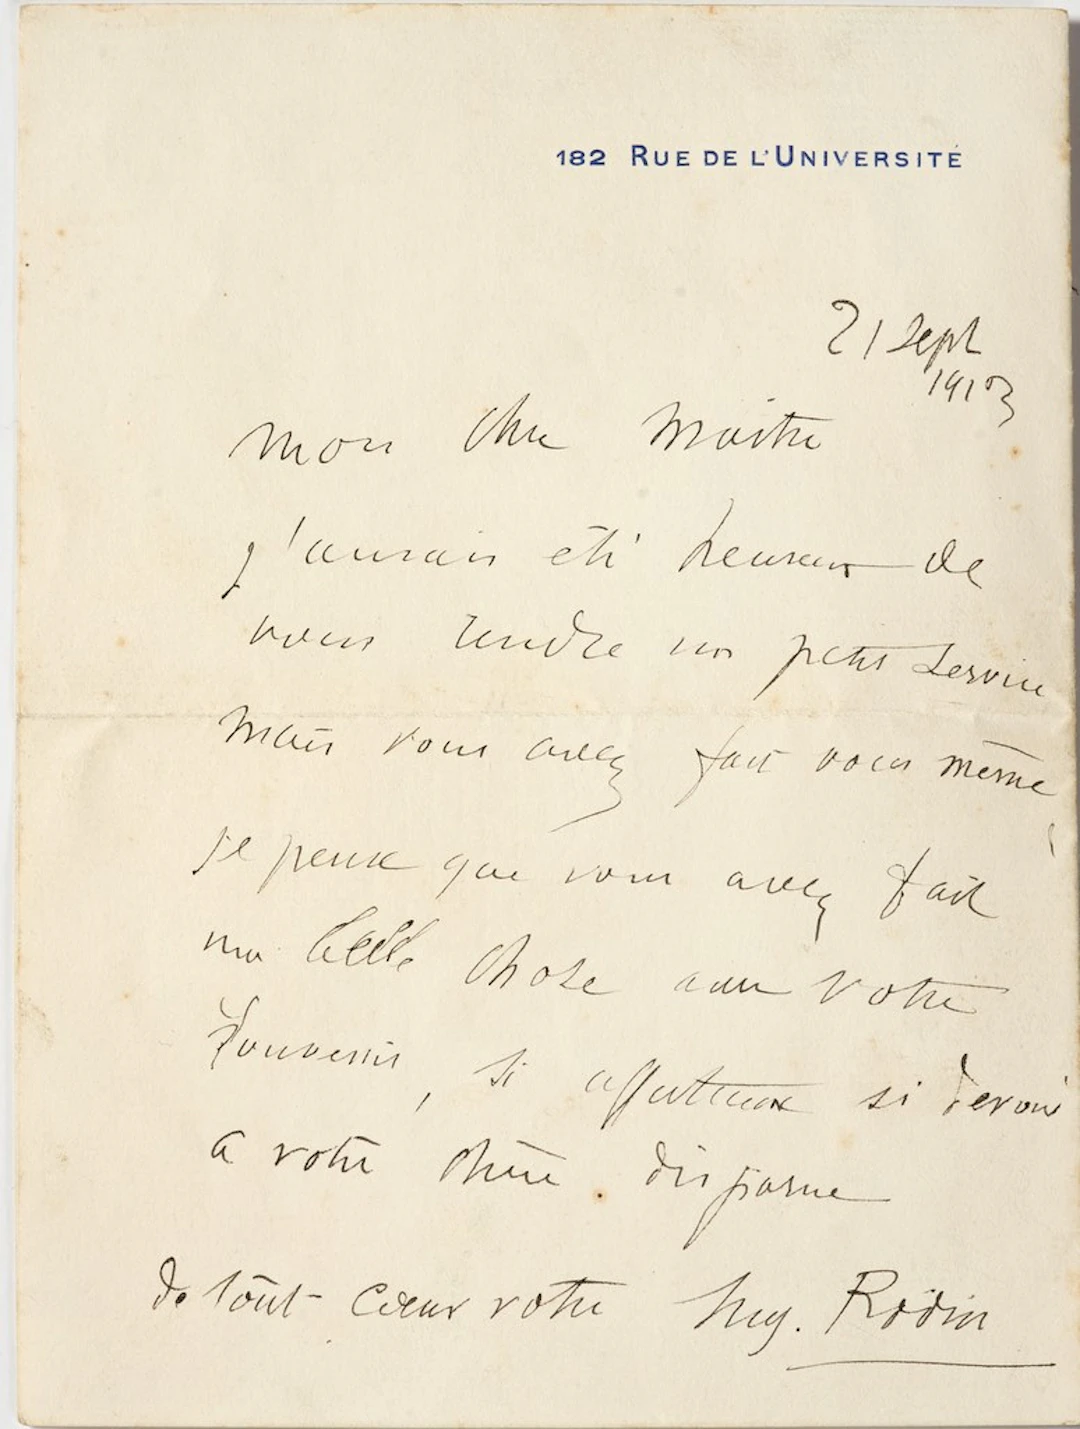 182 RUE DE L'UNIVERSITÉ
21 Sept
mon cher Maitre
j'aurais été heureux de
vous rendre un petit service
mais vous avez fait vous même
je pense que vous avez fait
une belle chose avec votre
souvenir, si affectueux si devoué
a votre chère disparue
de tout coeur votre Aug. Rodin